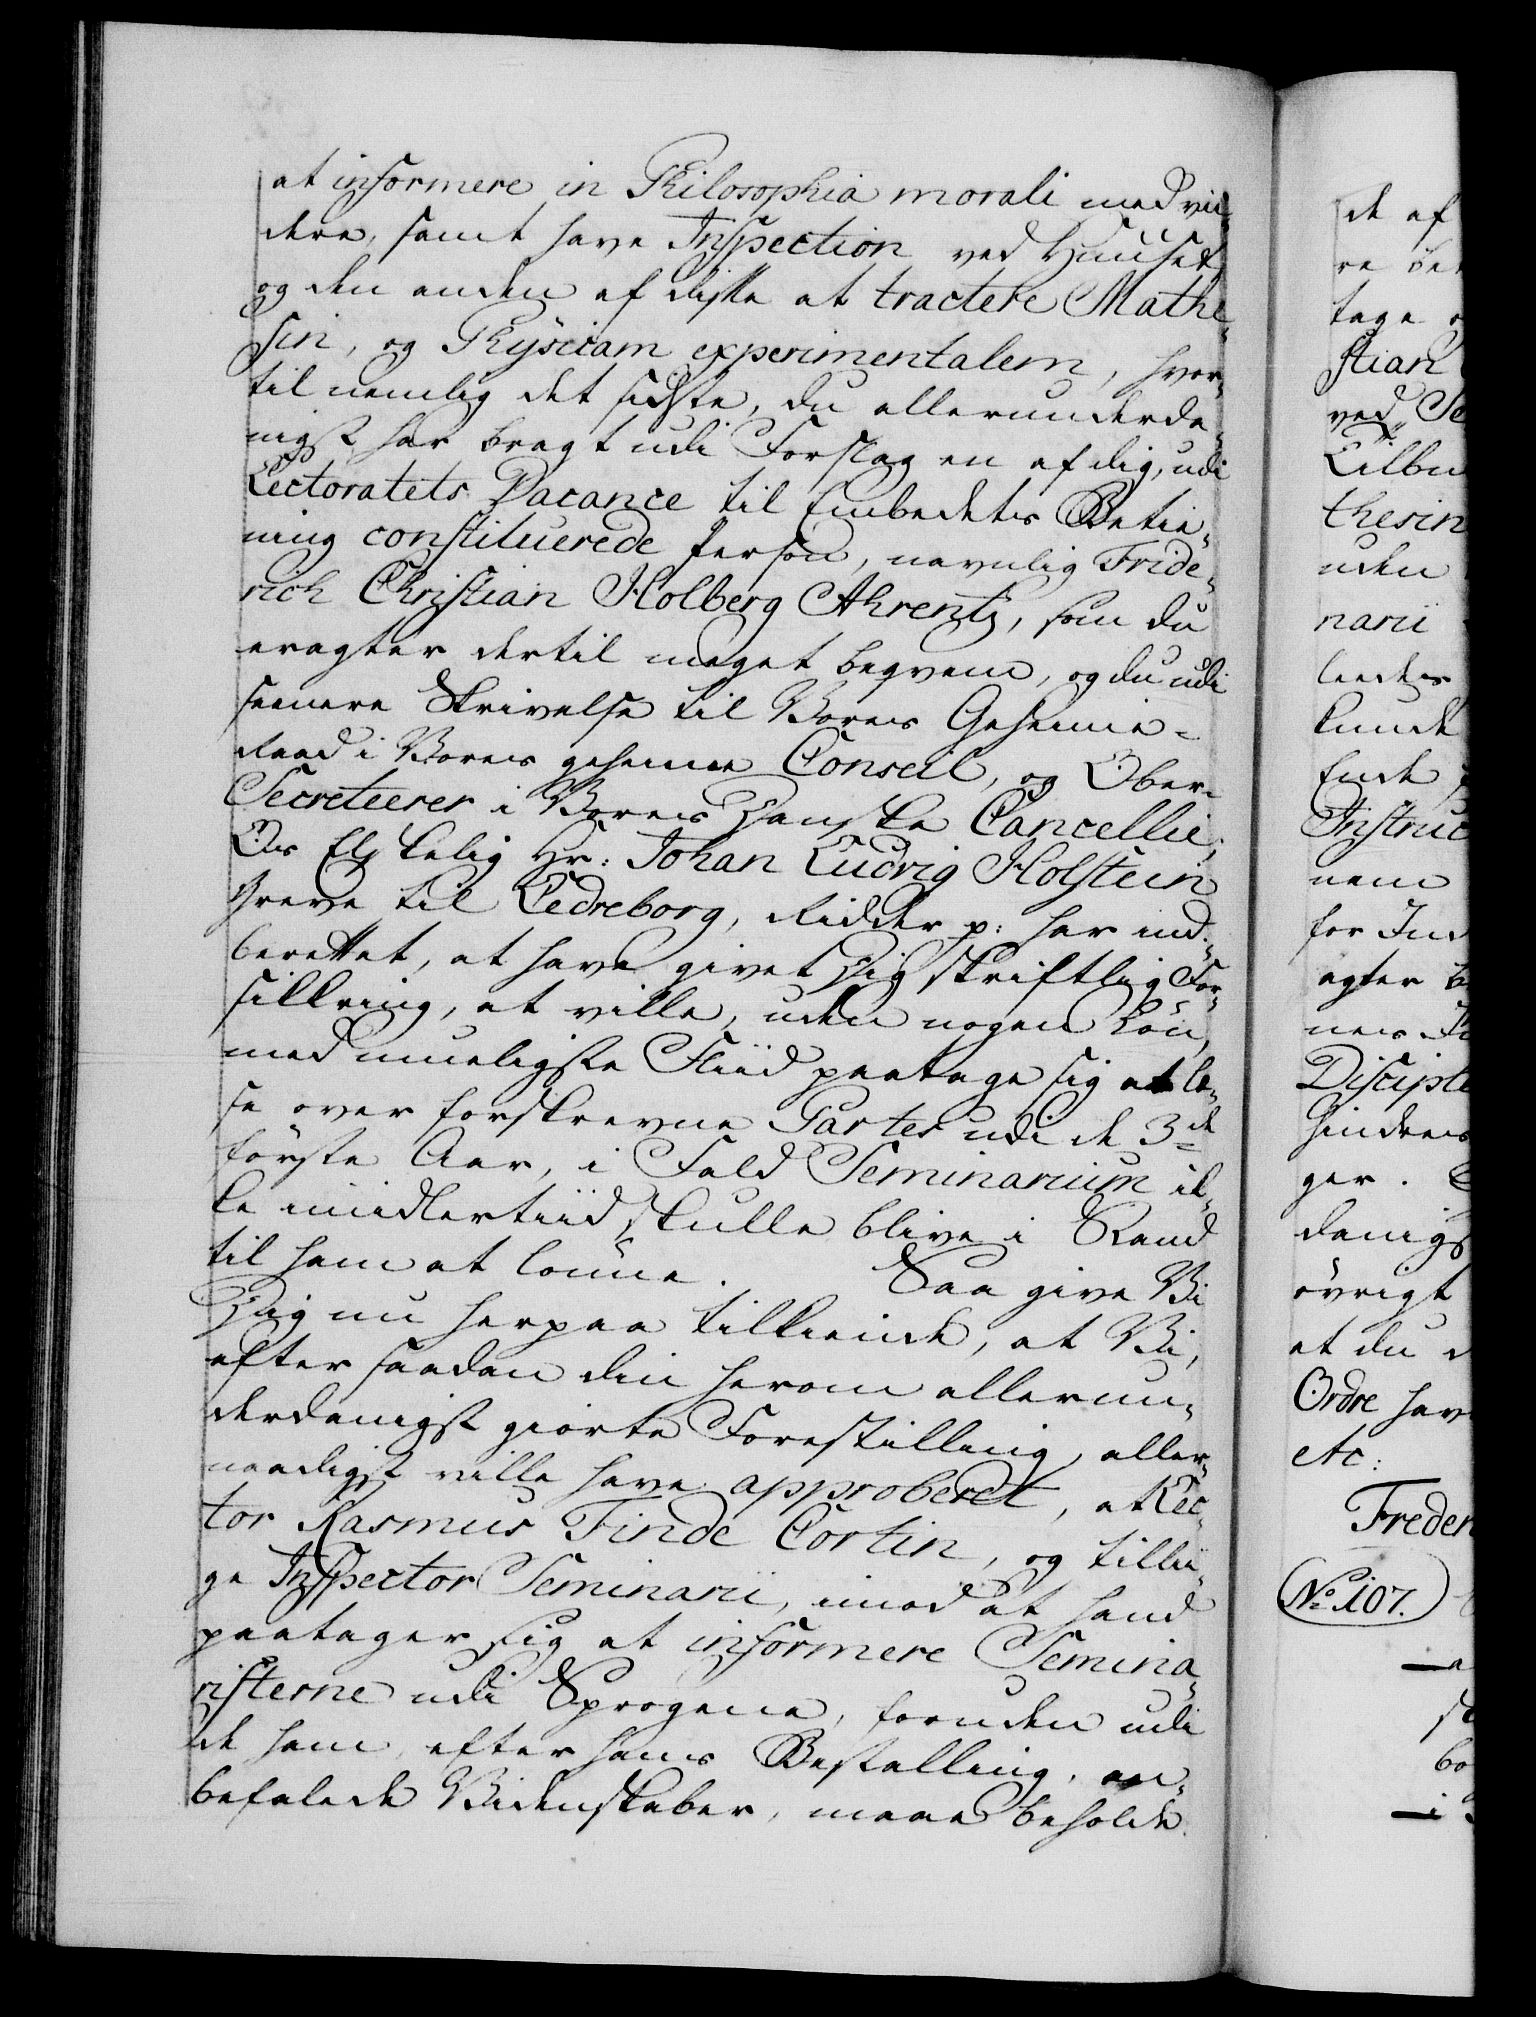 at informere in Philosophia morali med vii-
dere, samt have Inspection ved Huuset,
og den anden af disse at tractere Mathe-
sin, og Physicam experimentalem, hvor-
til nemlig det sidste, du allerunderda-
nigst har bragt udi Forslag en af dig, udi
Lectoratets Vacance til Embedets Betie-
ning constituerede Person, navnlig Fride-
rich Christian Holberg Ahrentz, som du
eragter dertil meget beqvem, og du udi
seenere Skrivelse til Vores Geheime-
Raad i Vores geheime Conseil, og Ober-
Secreterer i Vores Danske Cancellie,
Os Elskelig Hr: Johan Ludvig Holstein
Greve til Ledreborg, Ridder p: har ind-
berettet, at have givet Dig skriftlig For-
sikkring, at ville, uden nogen Løn,
med mueligste Fliid paatage sig at læ-
se over forskrevne Partes udi de 3de
første Aar, i Fald Seminarium ik-
ke imidlertiid skulle blive i Stand
til ham at lønne. Saa give Vi
Dig nu herpaa tilkiende, at Vi,
efter saadan din herom allerun-
derdanigst giorte Forestilling, aller-
naadigst ville have approberet, at Lec-
tor Rasmus Finde Cortin, og tillii-
ge Inspector Seminarii, imod at hand
paatager sig at informere Semina-
risterne udi Sprogene, foruden udi
de ham, efter hans Bestalling, an-
befalede Videnskaber, maae beholde
de af
re be
tage
stian
ved Se
Lilbu
thesin
uden
narii
leedes
kunde
Ende
Instruc
nem
for Ind
agter
nes
Discipl
hindres
ger.
danigs
øvrigt
at du
Ordre hav
etc:
Freder
No. 107.